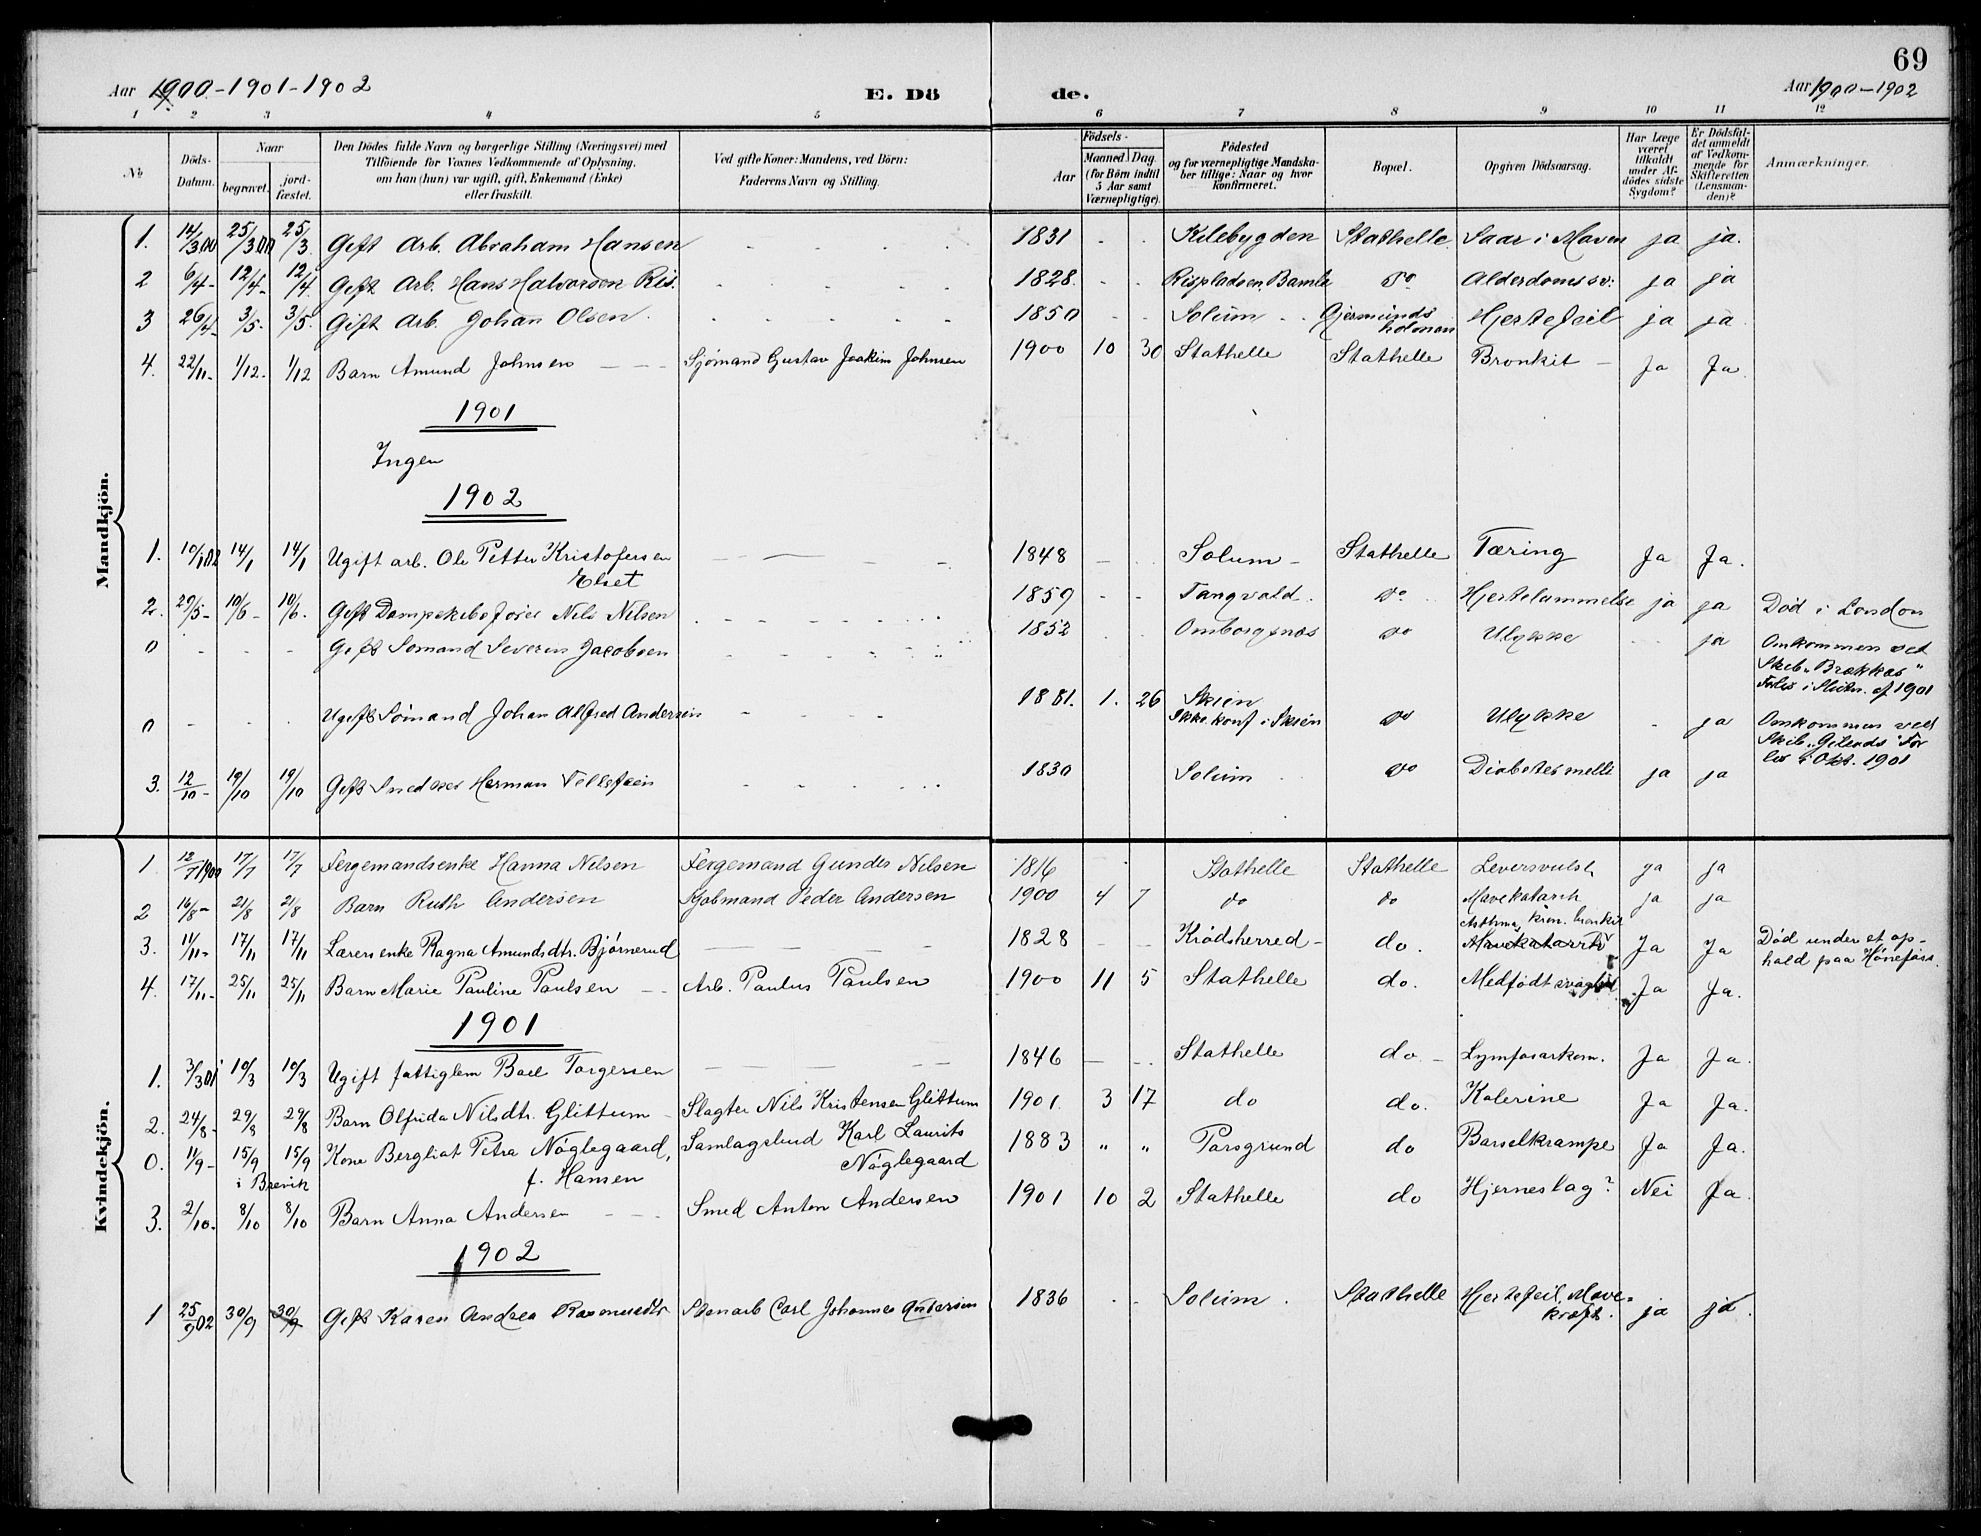 69
Aar 1900-1901-1902
E. Dö
de.
Aar 1900-1902
1 2 3 4 5 6 7 8 9 10 11 12
№
Döds-
Datum.
Naar
begravet.
jord-
fæstet.
Den Dödes fulde Navn og borgerlige Stilling (Næringsvei) med
Tilföiende for Voxnes Vedkommende af Oplysning,
om han (hun) var ugift, gift, Enkemand (Enke)
eller fraskilt.
Ved gifte Koner: Mandens, ved Börn:
Faderens Navn og Stilling.
Födsels-
Aar
Maaned
Dag
(for Börn indtil
5 Aar samt
Værnepligtige).
Födested
og for værnepligtige Mandska-
ber tillige: Naar og hvor
konfirmeret.
Bopæl.
Opgiven Dödsaarsag.
Har Læge
været
tilkaldt
under Af-
dödes sidste
Sygdom?
Er Dödsfal-
det anmeldt
af Vedkom-
mende for
Skifteretten
(Lensman-
den)?
Anmærkninger.
Mandkjön.
1. 14/3 00 25/3 00 25/3 Gift Arb. Abraham Hansen 1831 Kilebygden Stathelle Saar i Maven ja ja.
2 6/4- 12/4- 12/4 Gift Arb. Hans Halvorsen Ris. 1828. Rispladsen, Bamle Do Alderdomssv: ja ja
3 26/4- 3/5- 3/5. Gift Arb. Johan Olsen. 1850 Solum Gjermunds
holmen Hjertefeil ja ja
4. 22/11- 1/12- 1/12 Barn Amund Johnsen Sjömand Gustav Joakim Johnsen 1900 10 30 Stathelle Stathelle Bronkit Ja Ja
1901
Ingen
1902
1. 10/1 02 14/1 14/1 Ugift arb. Ole Petter Kristofersen
Elset 1848 Solum Stathelle Tæring Ja Ja.
2. 29/5- 10/6- 10/6. Gift Dampskibsfører Nils Nilsen 1859 Tangvald. Do Hjertelammelse ja ja Död i London
0 Gift Sømand Severin Jacobsen 1852 Omborgsnæs Do Ulykke ja Omkommen ved
Skib "Brækkas"
Forlis i Slutn. af 1901
0 Ugift Sømand Johan Alfred Andersen 1881. 1. 26 Skien
Ikke konf i Skien Do Ulykke ja Omkommen ved
Skib For
lis i Okt. 1901
3. 12/10- 19/10 19/10 Gift Snedker Herman 1830 Solum Do Diabetes melli ja ja
Kvindekjön.
1 12/7 1900 17/7 17/7 Fergemandsenke Hanna Nilsen Fergemand Gunder Nilsen 1816 Stathelle Stathelle Leversvulst ja ja
2 16/8- 21/8 21/8 Barn Ruth Andersen Kjöbmand Peder Andersen 1900 4 7 do do Mavekatarrh ja ja
3. 11/11- 17/11 17/11 Lærerenke Ragna Amundsdtr. Bjørnerud 1828 Krödsherred do. Asthma, kron. bronkit
Mavekatarrh Ja Ja Död under et op-
hold paa Hönefoss.
4. 17/11- 25/11 25/11 Barn Marie Pauline Paulsen Arb. Paulus Paulsen 1900 11 5 Stathelle do. Medfödt svaghed Ja Ja.
1901
1. 3/3 01 10/3 10/3 Ugift fattiglem Boel Torgersen 1846 Stathelle do Lymfosarkom. Ja Ja.
2. 24/8- 29/8 29/8 Barn Olfrida Nilsdtr. Glittum Slagter Nils Kristensen Glittum 1901. 3 17 do do. Kolerine Ja Ja.
0. 11/9- 15/9 15/9
i Brevik Kone Bergliot Petra Nöglegaard,
f. Hansen Samlagsbud Karl Laurits
Nöglegaard 1883 " " Porsgrund do Barselkrampe Ja Ja.
3. 2/10- 8/10 8/10 Barn Anna Andersen Smed Anton Andersen 1901 10 2 Stathelle do Hjerneslag? Nei Ja
1902
1 25/9 02 30/9 30/9 Gift Karen Andrea Rasmusdtr Stenarb Carl Johannes Andersen 1836 Solum. Stathelle Hjertefeil, Mave-
kræft. ja ja.